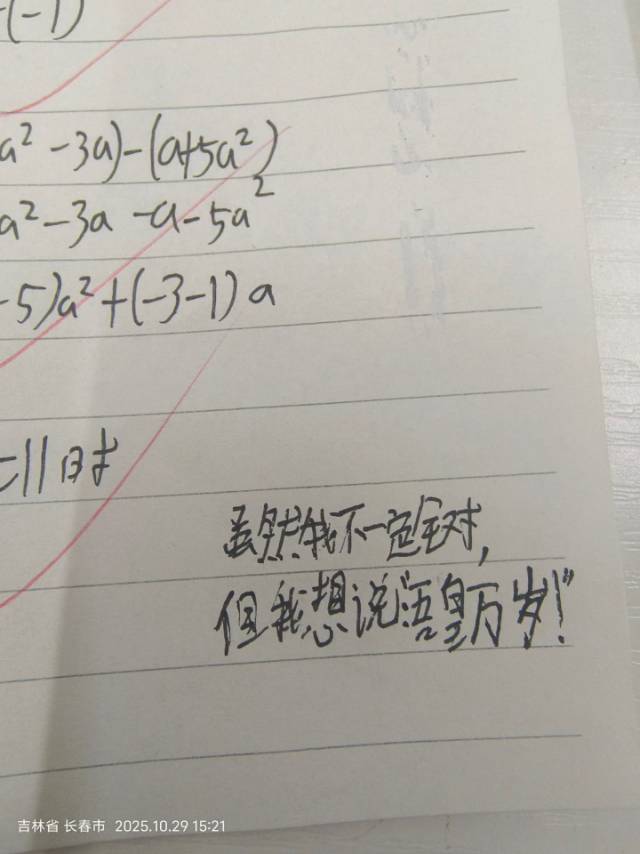 -(-1)
a² -3a)-(a+5a²)
a²-3a -a-5a²
-5)a²+(-3-1)a
=11时
虽然我不一定全对,
但我想说“吾皇万岁!”
吉林省 长春市 2025.10.29 15:21